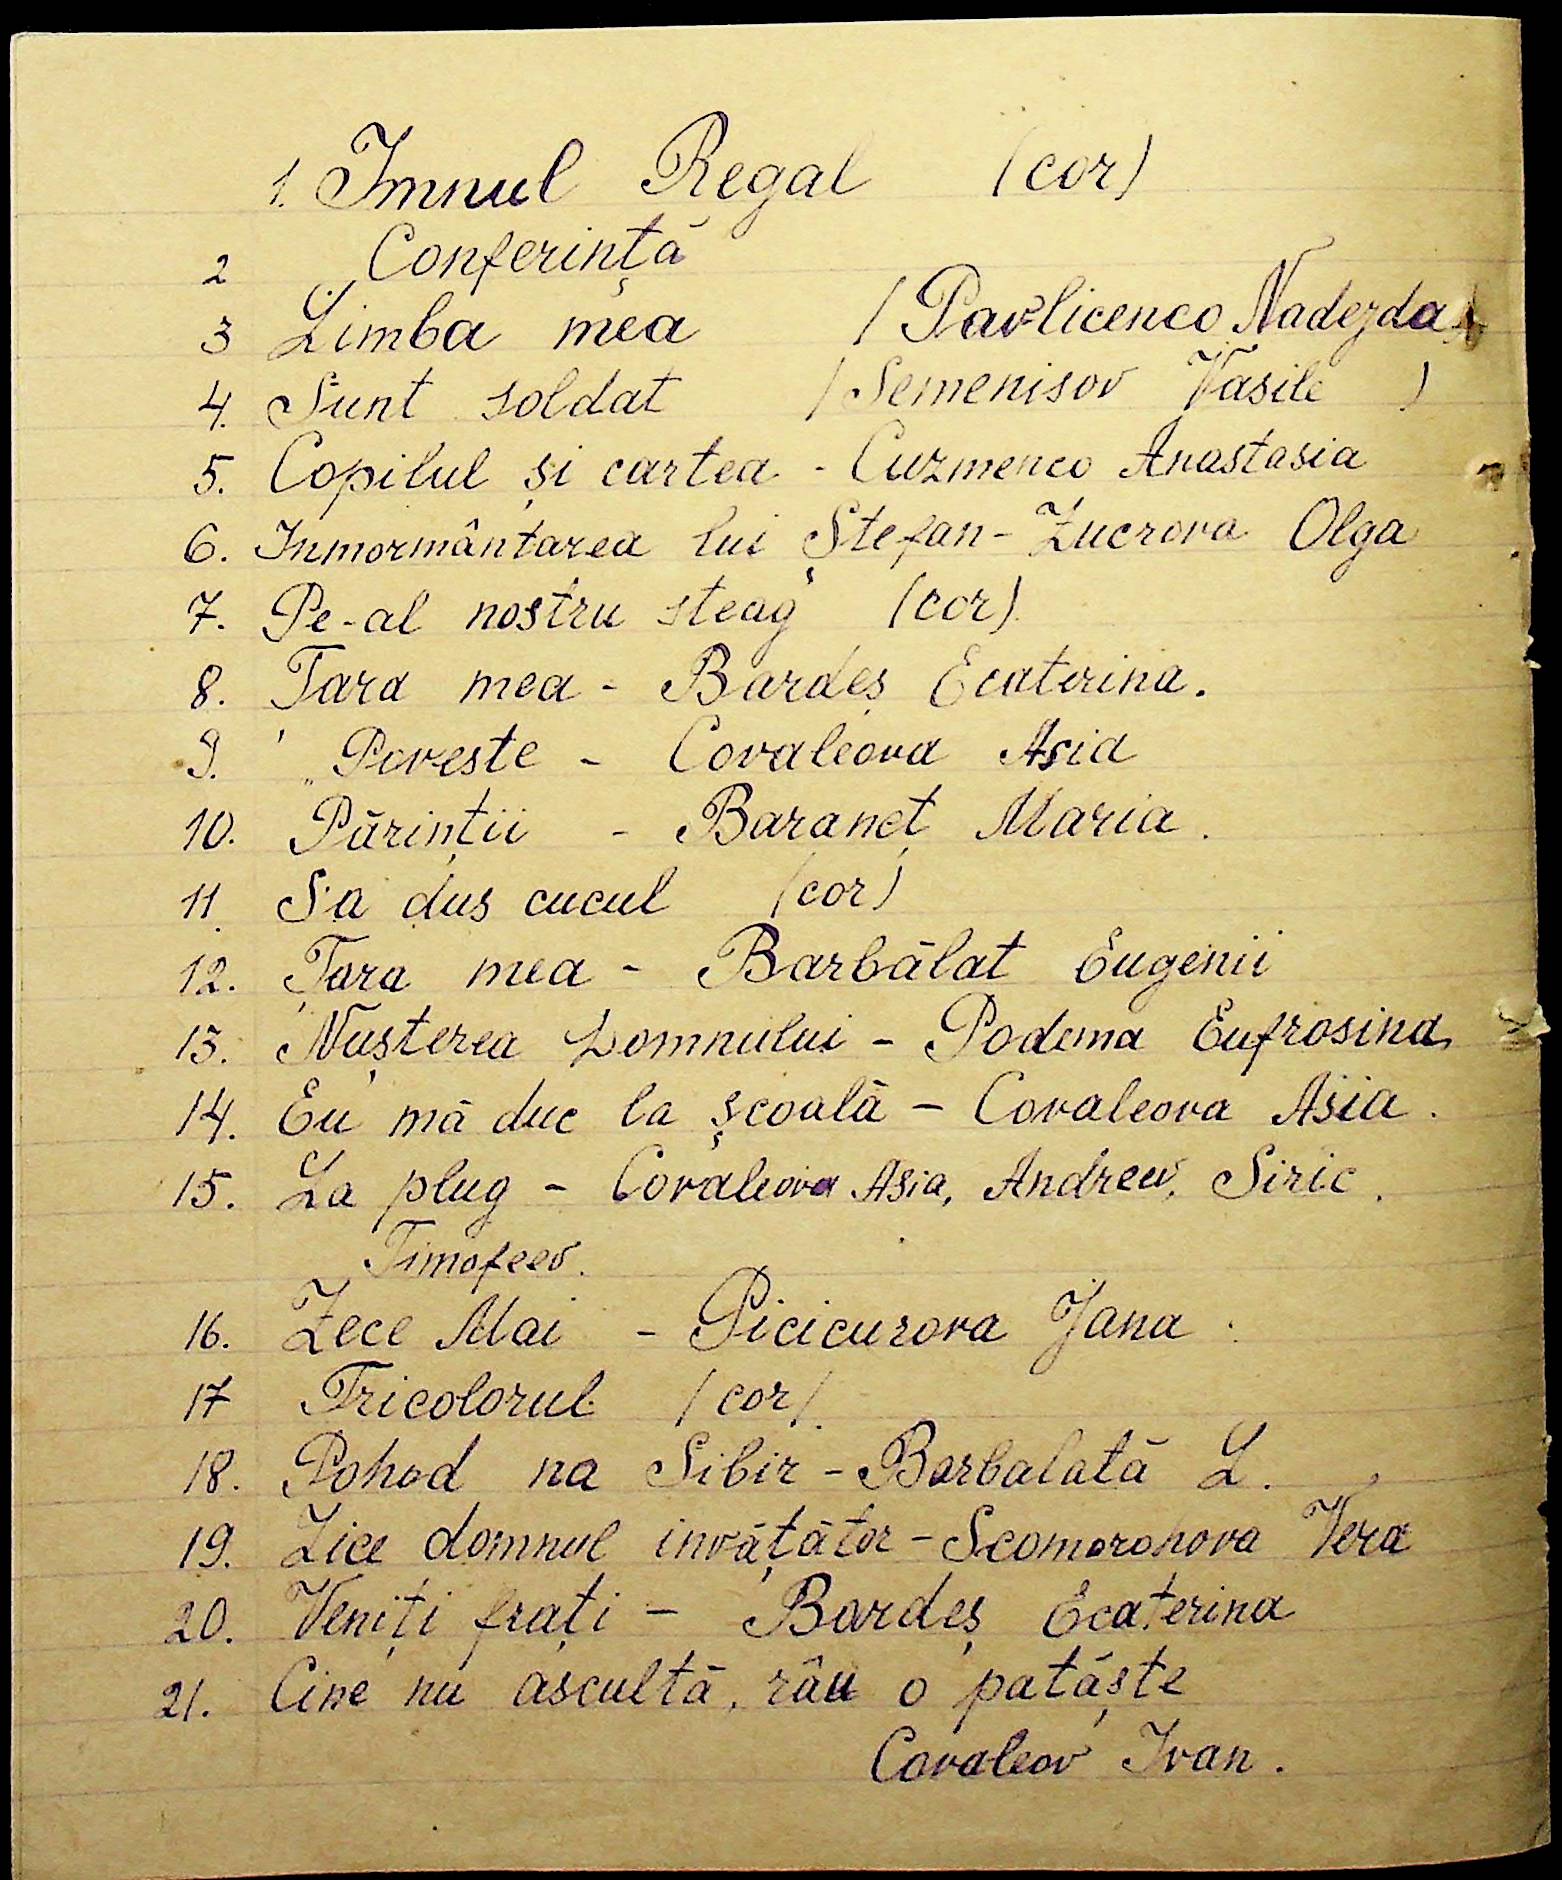 1. Imnul Regal (cor)
2 Conferință
3 Limba mea (Pavlicenco Nadejda)
4. Sunt soldat (Semenisov Vasile)
5. Copilul și cartea - Cuzmenco Anastasia
6. Inmormântarea lui Ștefan - Zucrova Olga
7. Pe-al nostru steag (cor)
8. Țara mea - Bardeș Ecaterina.
9. Poveste - Covaleova Asia
10. Părinții - Baraneț Maria.
11. S'a dus cucul (cor)
12. Țara mea - Barbălat Eugenii
13. Nușterea Domnului - Podema Eufrosina
14. Eu mă duc la școală - Covaleova Asia.
15. La plug - Covaleova Asia, Andreev, Siric.
Timofeev.
16. Zece Mai - Picicurova Jana
17 Tricolorul (cor)
18. Pohod na Sibir - Barbalată L.
19. Zice domnul invățător - Scomorohova Vera
20. Veniți frați - Bardeș Ecaterina
21. Cine nu ascultă, râu o patăște
Covaleov Ivan.